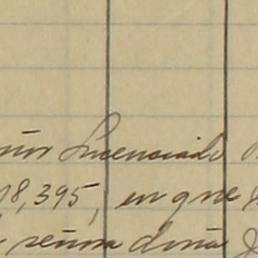 Licenciado
18,395, en que
señora doña